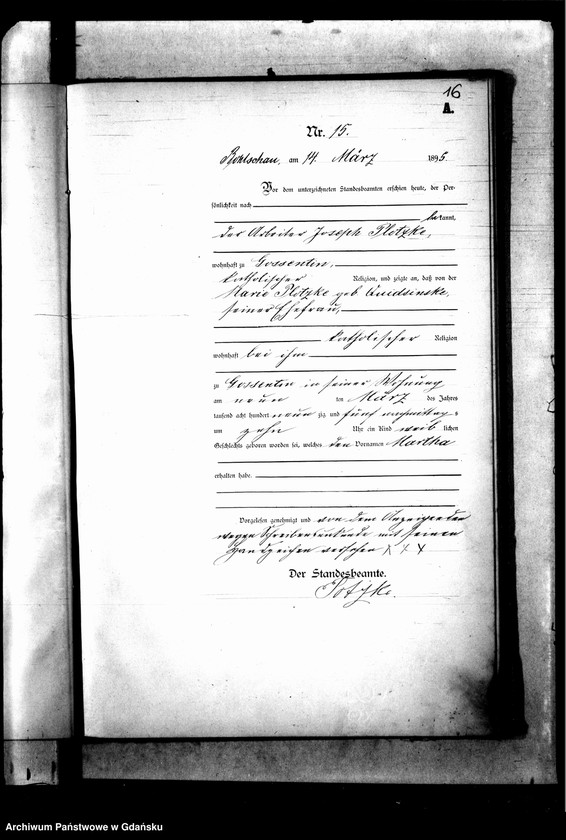 16
A.
Nr. 15.
Bohlschau, am 14. März 1895.
Vor dem unterzeichneten Standesbeamten erschien heute, der Per-
sönlichkeit nach
bekannt,
der Arbeiter Joseph Plotzke,
wohnhaft zu Gossentin,
katholischer Religion, und zeigte an, daß von der
Marie Plotzke geb. Quidsinske,
seiner Ehefrau,
katholischer Religion
wohnhaft bei ihm
zu Gossentin in seiner Wohnung
am neun ten März des Jahres
tausend acht hundert neun zig und fünf nachmittags
um zehn Uhr ein Kind weib lichen
Geschlechts geboren worden sei, welches den Vornamen Martha
erhalten habe.
Vorgelesen genehmigt und von dem Anzeigenden
wegen Schreibensunkunde mit seinem
Handzeichen versehen X X X
Der Standesbeamte.
Archiwum Państwowe w Gdańsku